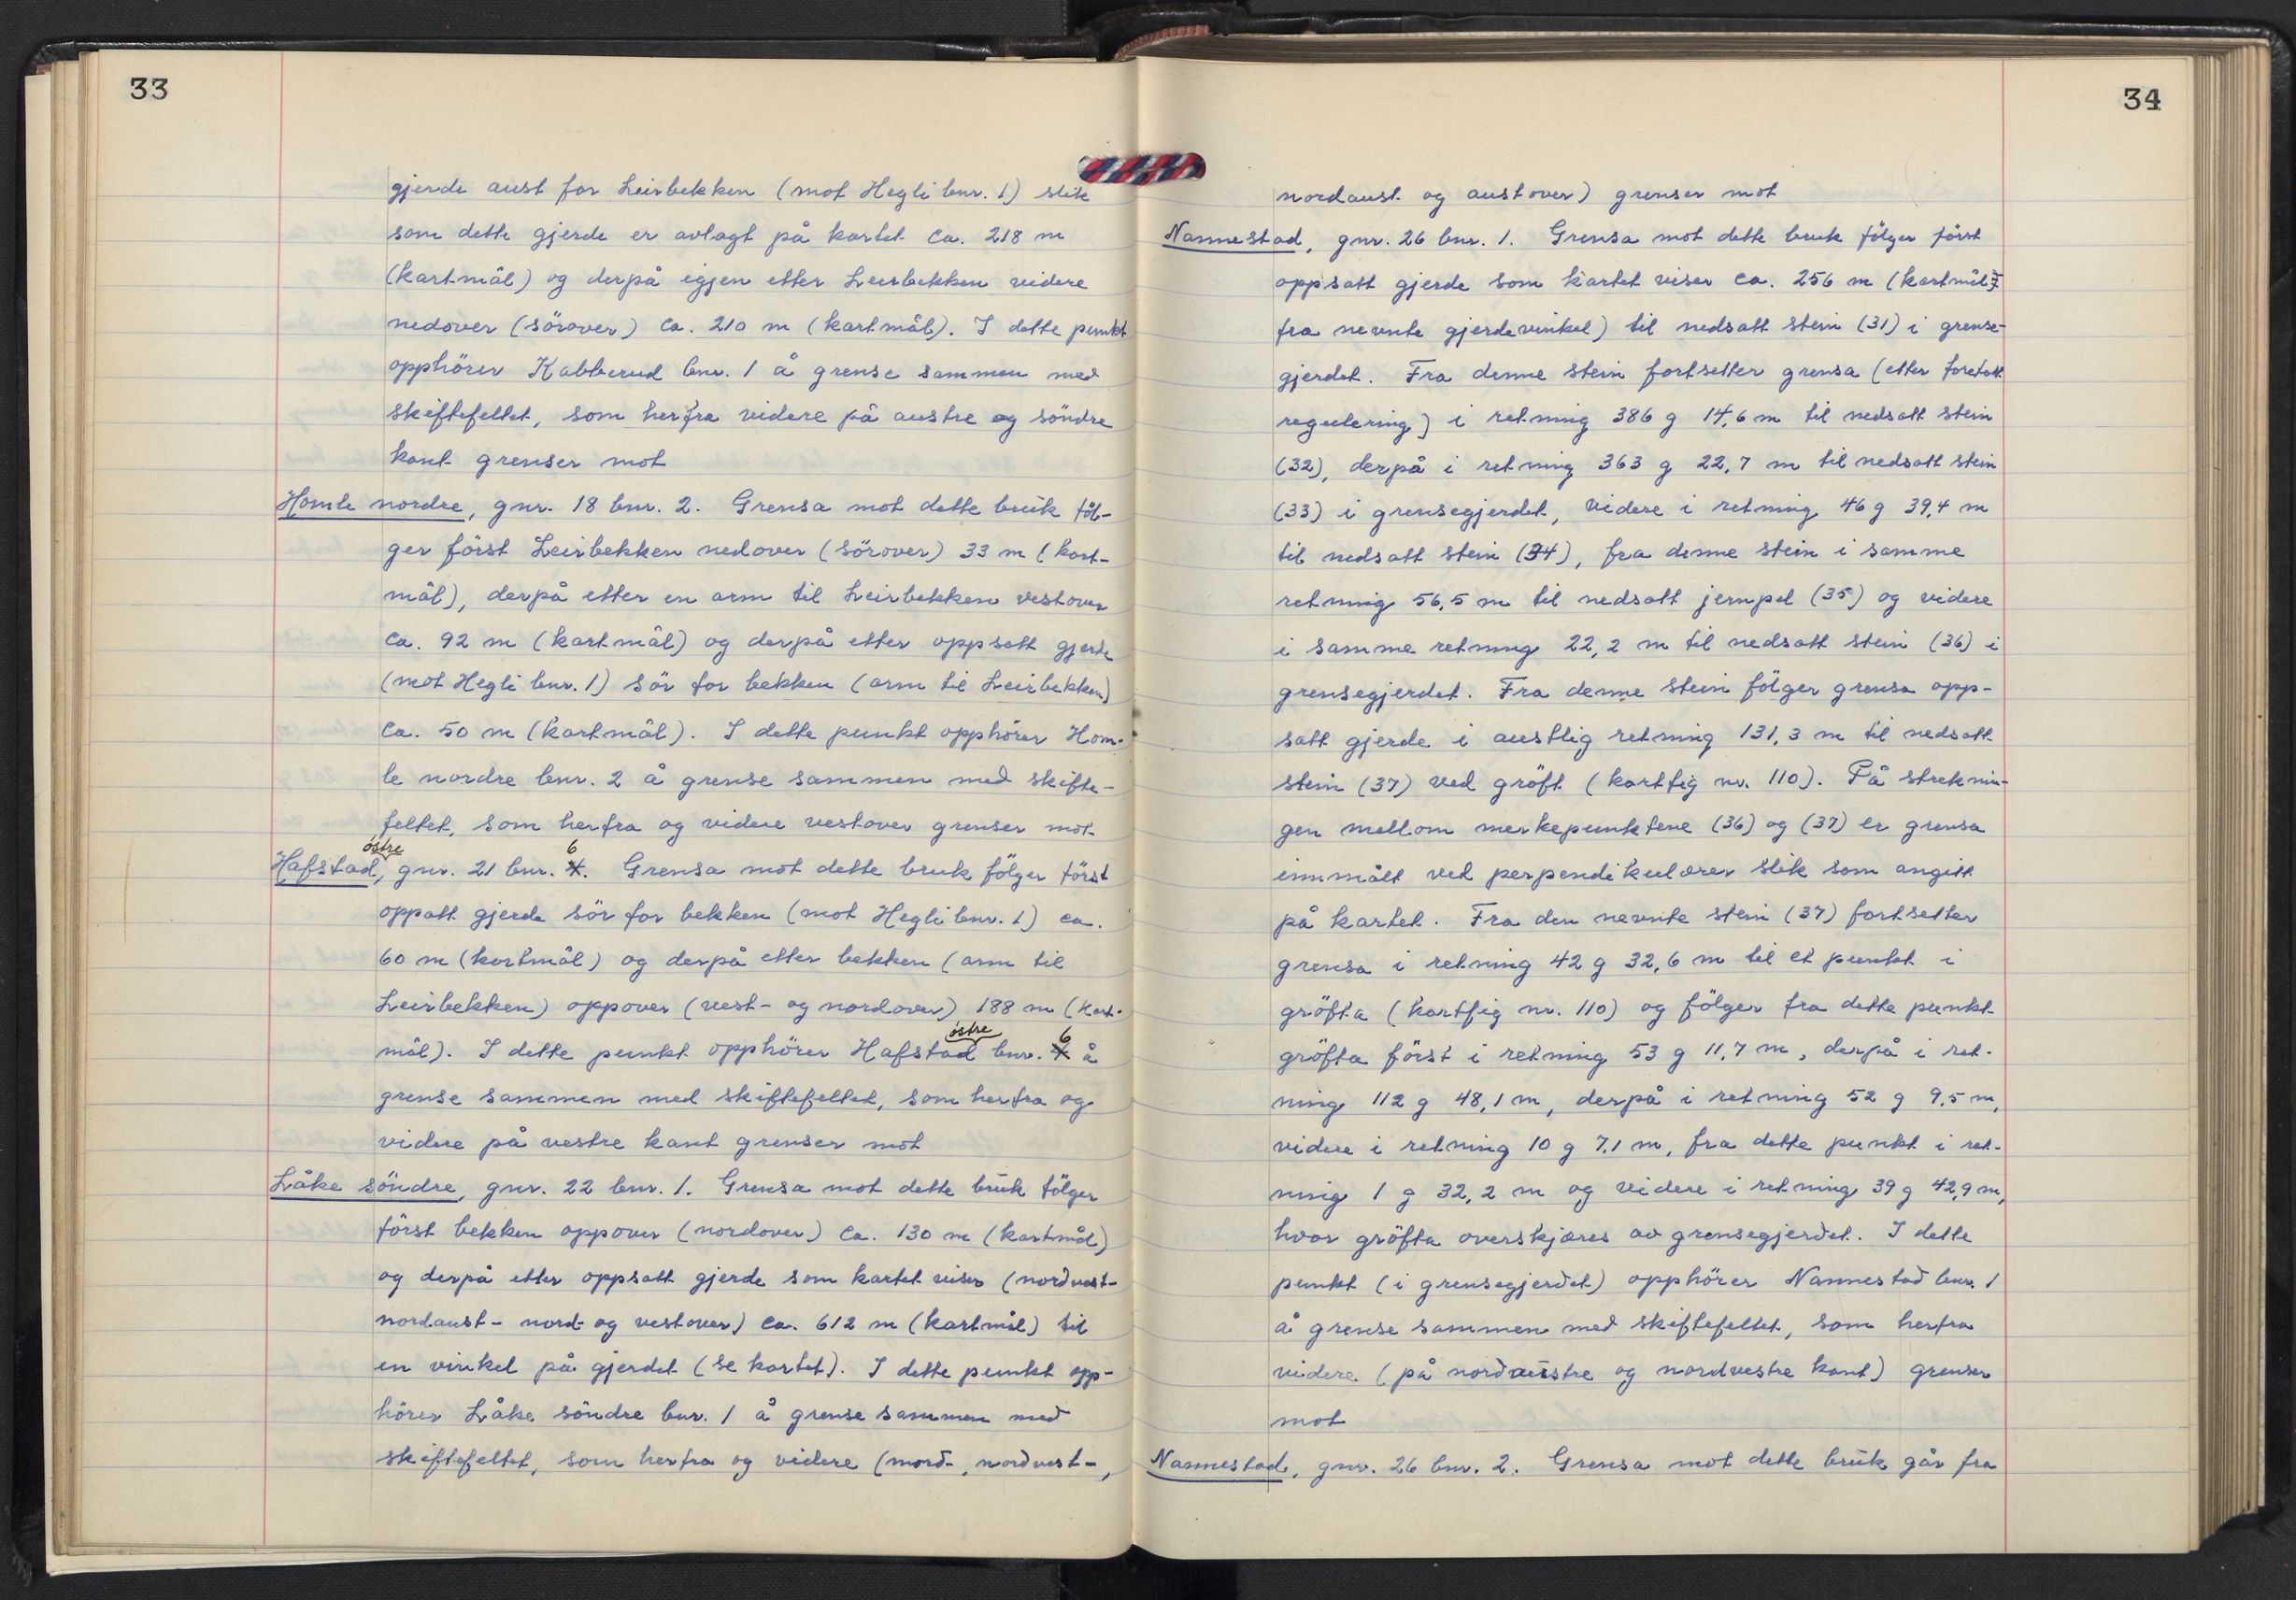 33
gjerde aust for Leirbekken (mot Hegli bnr. 1) slik
som dette gjerde er avlagt på kartet ca. 218 m
(kartmål) og derpå igjen etter Leirbekken videre
nedover (sörover) ca. 210 m (kartmål). I dette punkt
opphörer Kabberud bnr. 1 å grense sammen med
skiftefeltet, som herfra videre på austre og söndre
kant grenser mot
Homle nordre, gnr. 18 bnr. 2. Grensa mot dette bruk föl-
ger först Leirbekken nedover (sörover) 33 m (kart-
mål), derpå etter en arm til Leirbekken vestover
ca. 92 m (kartmål) og derpå etter oppsatt gjerde
(mot Hegli bnr. 1) sör for bekken (arm til Leirbekken)
ca. 50 m (kartmål). I dette punkt opphörer Hom-
le nordre bnr. 2 å grense sammen med skifte-
feltet, som herfra og videre vestover grenser mot
östre 6
Hafstad, gnr. 21 bnr. 4. Grensa mot dette bruk fölger först
oppatt gjerde sör for bekken (mot Hegli bnr. 1) ca.
60 m (kartmål) og derpå etter bekken (arm til
Leirbekken) oppover (vest- og nordover) 188 m (kart-
östre 6
mål). I dette punkt opphörer Hafstad bnr. 4 å
grense sammen med skiftefeltet, som herfra og
videre på vestre kant grenser mot
Låke söndre, gnr. 22 bnr. 1. Grensa mot dette bruk fölger
först bekken oppover (nordover) ca. 130 m (kartmål)
og derpå etter oppsatt gjerde som kartet viser (nordvest-
nordaust- nord- og vestover) ca. 612 m (kartmål) til
en vinkel på gjerdet (se kartet). I dette punkt opp-
hörer Låke söndre bnr. 1 å grense sammen med
skiftefeltet, som herfra og videre (nord-, nordvest-,
34
nordaust- og austover) grenser mot
Nannestad, gnr. 26 bnr. 1. Grensa mot dette bruk fölger först
oppsatt gjerde som kartet viser ca. 256 m (kartmål
fra nevnte gjerdevinkel) til nedsatt stein (31) i grense-
gjerdet. Fra denne stein fortsetter grensa (etter foretatt
regulering) i retning 386 g 14,6 m til nedsatt stein
(32), derpå i retning 363 g 22,7 m til nedsatt stein
(33) i grensegjerdet, videre i retning 46 g 39,4 m
til nedsatt stein (34), fra denne stein i samme
retning 56,5 m til nedsatt jernpel (35) og videre
i samme retning 22,2 m til nedsatt stein (36) i
grensegjerdet. Fra denne stein fölger grensa opp-
satt gjerde i austlig retning 131,3 m til nedsatt
stein (37) ved gröft (kartfig nr. 110). På streknin-
gen mellom merkepunktene (36) og (37) er grensa
innmålt ved perpendikulærer slik som angitt
på kartet. Fra den nevnte stein (37) fortsetter
grensa i retning 42 g 32,6 m til et punkt i
gröfta (kartfig nr. 110) og fölger fra dette punkt
gröfta först i retning 53 g 11,7 m, derpå i ret-
ning 112 g 48,1 m, derpå i retning 52 g 9,5 m,
videre i retning 10 g 7,1 m, fra dette punkt i ret-
ning 1 g 32,2 m og videre i retning 39 g 42,9 m,
hvor gröfta overskjæres av grensegjerdet. I dette
punkt (i grensegjerdet) opphörer Nannestad bnr. 1
å grense sammen med skiftefeltet, som herfra
videre (på nordaustre og nordvestre kant) grenser
mot
Nannestad, gnr. 26 bnr. 2. Grensa mot dette bruk går fra